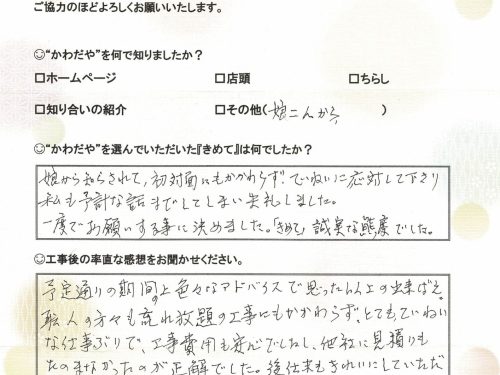 ご協力のほどよろしくお願いいたします。
☺“かわだや”を何で知りましたか？
□ホームページ □店頭 □ちらし
□知り合いの紹介 □その他（娘さんから ）
☺“かわだや”を選んでいただいた『きめて』は何でしたか？
娘から知らされて，初対面にもかかわらず，ていねいに応対して下さり
私も予計な話までしてしまい失礼しました。
一度でお願いする事に決めました。「きめて」誠実な態度でした。
☺工事後の率直な感想をお聞かせください。
予定通りの期間の上色々なアドバイスで思った以上の出来ばえ。
職人の方々も荒れ放題の工事にもかかわらず，とてもていねい
な仕事ぶりで、工事費用も安心でしたし、他社に見積りも
たのまなかったのが正解でした。後仕末もきれいにしていただ